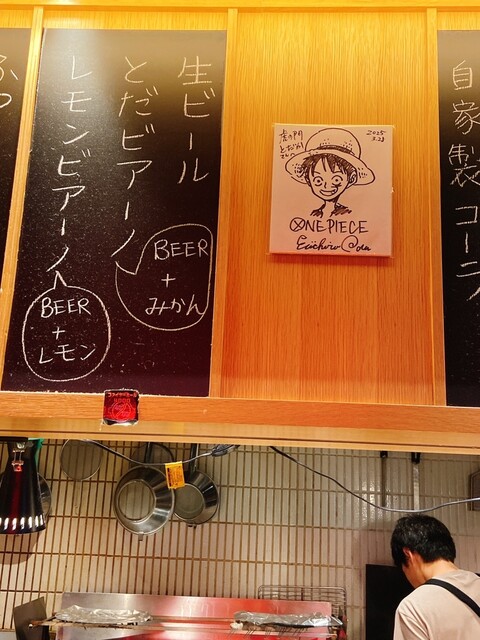 生ビール
とだビアーノ
BEER
+
みかん
レモンビアーノ
BEER
+
レモン
虎の門
とだか
さんへ
2025
ONE PIECE
Eiichiro Oda
自家製コーラ